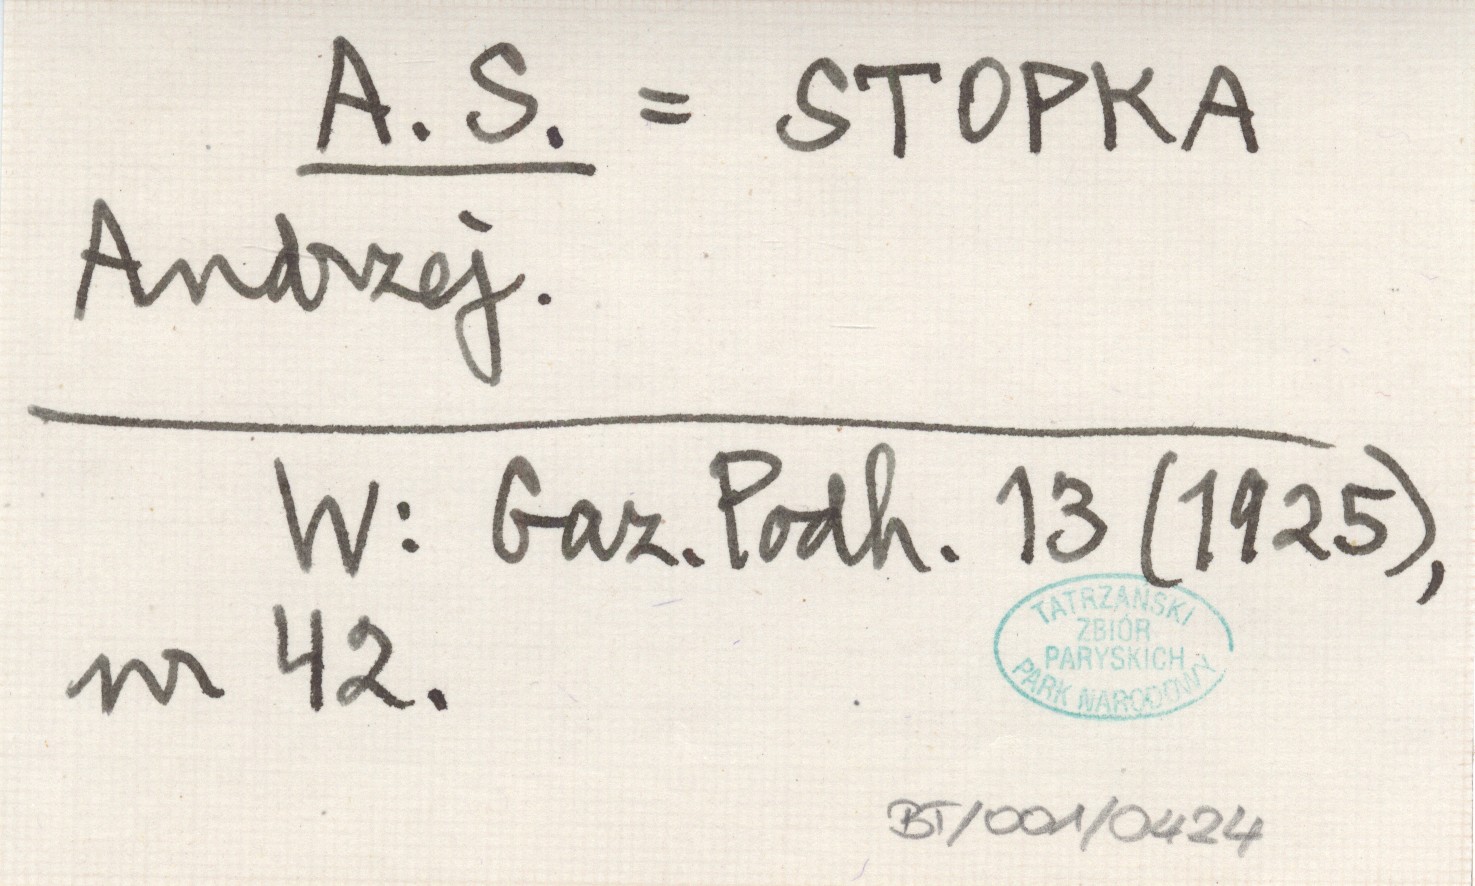 A. S. = STOPKA
Andrzej.
W: Gaz. Podh. 13 (1925),
nr 42.
TATRZAŃSKI
ZBIÓR
PARYSKICH
PARK NARODOWY
BT/001/0424